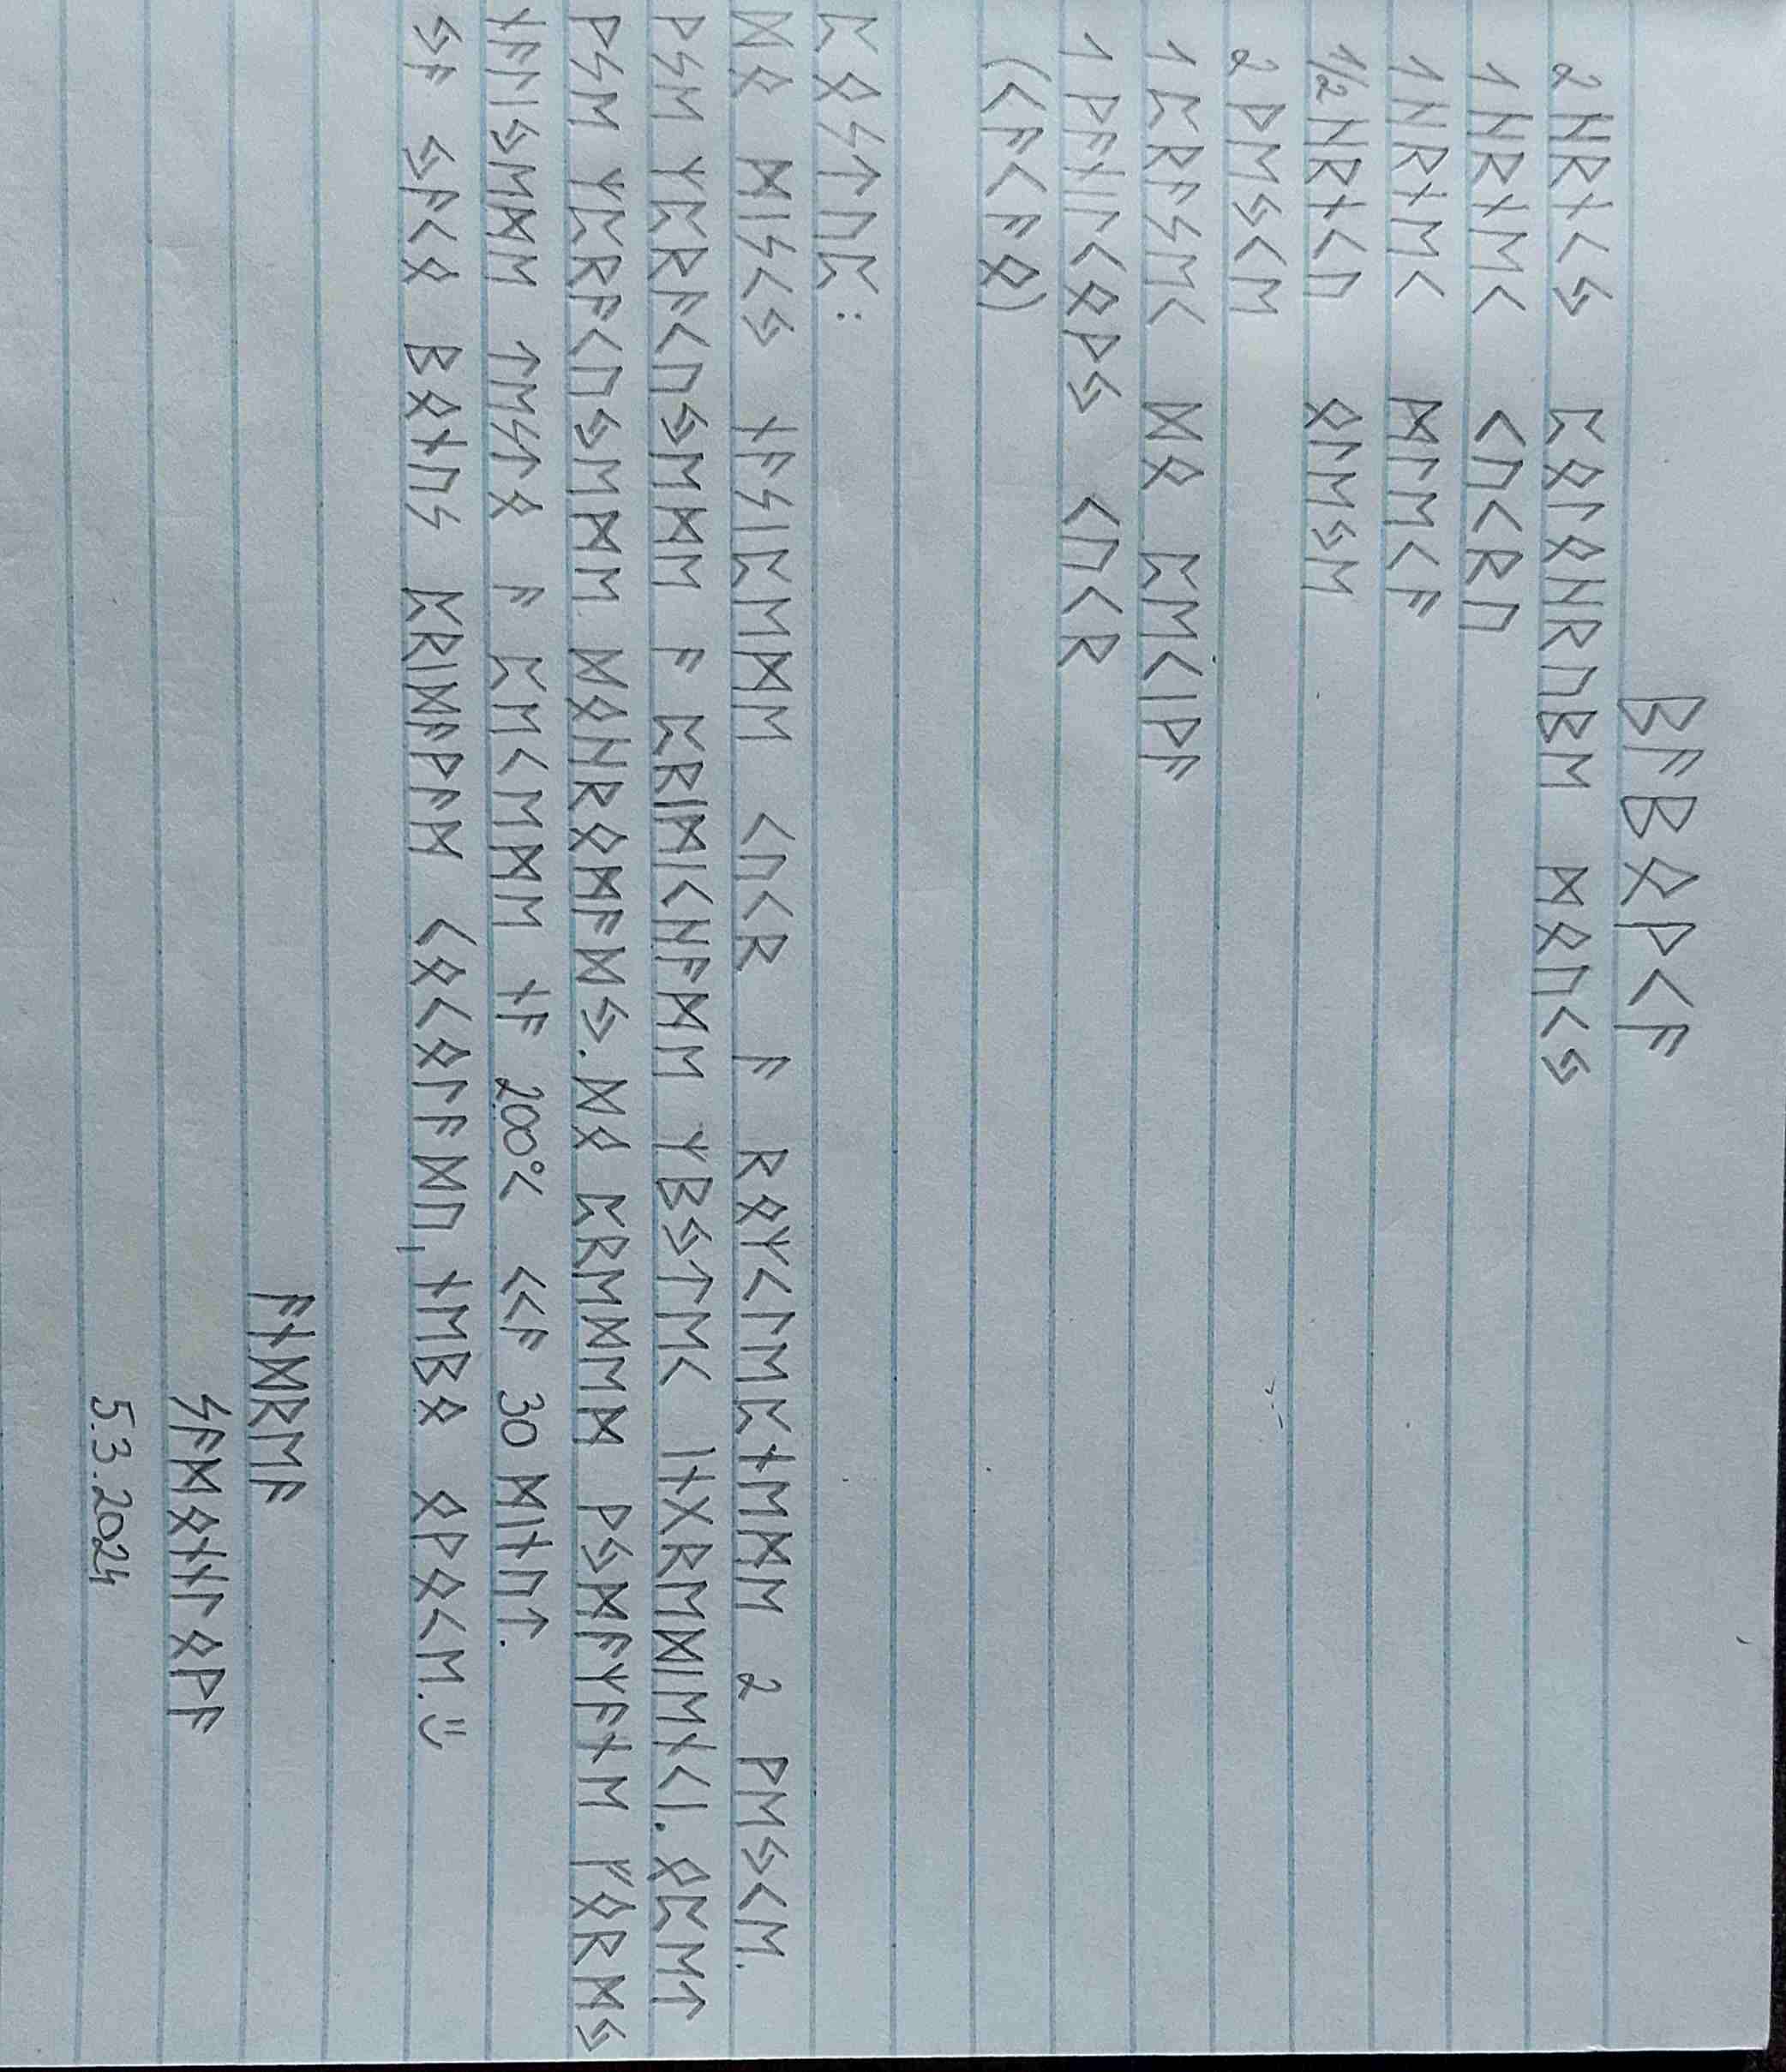 ᛒᚨᛒᛟᚹᚲᚨ
2 ᚺᚱᚾᚲᛃ ᛈᛟᛚᛟᚺᚱᚢᛒᛖ ᛗᛟᚢᚲᛃ
1 ᚺᚱᚾᛖᚲ ᚲᚢᚲᚱᚢ
1 ᚺᚱᚾᛖᚲ ᛗᛚᛖᚲᚨ
1/2 ᚺᚱᚾᚲᚢ ᛟᛚᛖᛃᛖ
2 ᚹᛖᛃᚲᛖ
1 ᛈᚱᚨᛊᛖᚲ ᛞᛟ ᛈᛖᚲᛁᚹᚨ
1 ᚹᚨᚾᛁᛚᚲᛟᚹᛃ ᚲᚢᚲᚱ
(ᚲᚨᚲᚨᛟ)
ᛈᛟᛊᛏᚢᛈ:
ᛞᛟ ᛗᛁᛊᚲᛃ ᚾᚨᛊᛁᛈᛖᛗᛖ ᚲᚢᚲᚱ ᚨ ᚱᛟᛉᚲᛚᛖᛈᚾᛖᛗᛖ 2 ᚹᛖᛃᚲᛖ.
ᚹᛊᛖ ᛉᛈᚱᚨᚲᚢᛃᛖᛗᛖ ᚨ ᛈᚱᛁᛗᛁᚲᚺᚨᛗᛖ ᛉᛒᛃᛏᛖᚲ ᛁᚾᚷᚱᛖᛞᛁᛖᚾᚲᛁ. ᛟᛈᛖᛏ
ᚹᛊᛖ ᛉᛈᚱᚨᚲᚢᛃᛖᛗᛖ ᛞᛟᚺᚱᛟᛗᚨᛞᛃ. ᛞᛟ ᛈᚱᛖᛞᛖᛗ ᚹᛃᛗᚨᛉᚨᚾᛖ ᚠᛟᚱᛗᛃ
ᚾᚨᛚᛁᛃᛖᛗᛖ ᛏᛖᛊᛏᛟ ᚨ ᛈᛖᚲᛖᛗᛖ ᚾᚨ 200°ᚲ ᚲᚲᚨ 30 ᛗᛁᚾᚢᛏ.
ᛃᚨ ᛃᚨᚲᛟ ᛒᛟᚾᚢᛊ ᛈᚱᛁᛞᚨᚹᚨᛗ ᚲᛟᚲᛟᛚᚨᛞᚢ, ᚾᛖᛒᛟ ᛟᚹᛟᚲᛖ. :)
ᚨᚾᛞᚱᛖᚨ
ᛊᚨᛗᛟᚾᛁᛚᛟᚹᚨ
5.3.2024